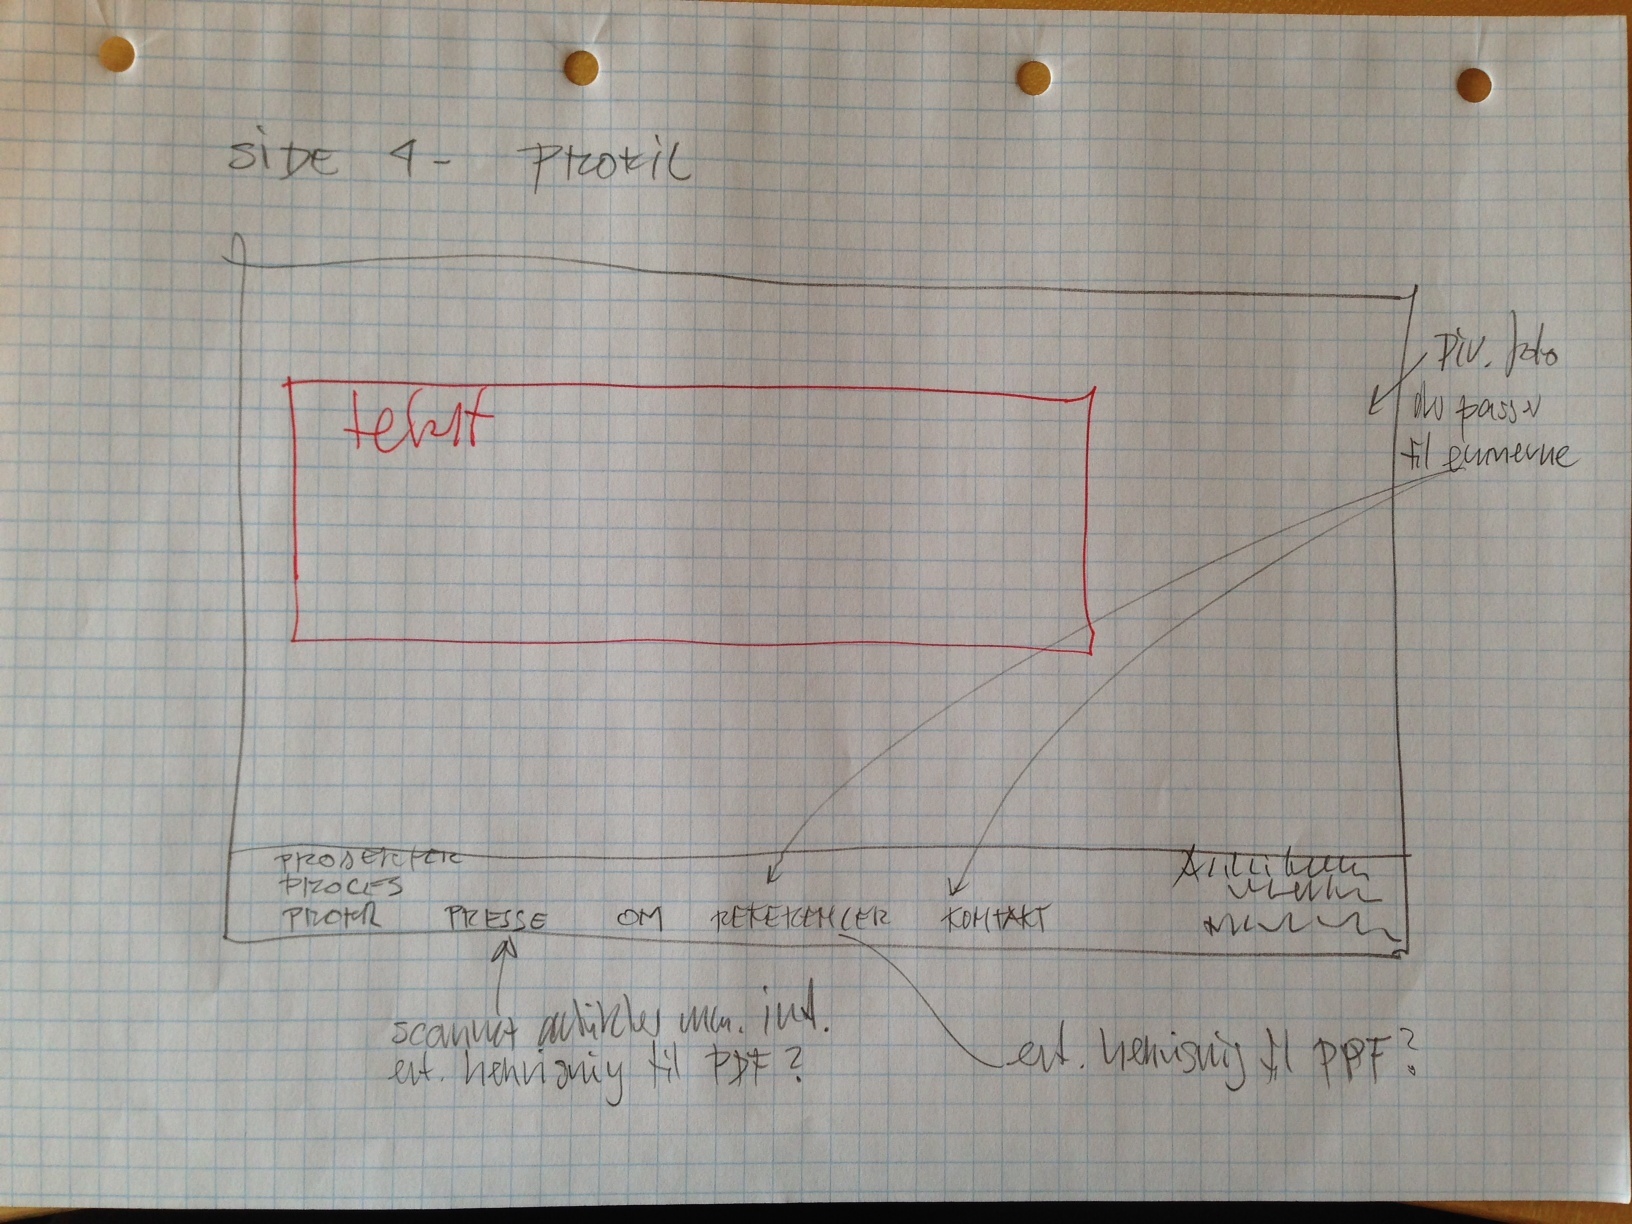 SIDE 4 - PROFIL
tekst
Div. foto
der passer
til emnerne
PRODEKTER
PROCES
PROFIL PRESSE OM REFERENCER KONTAKT
scannet artikler
evt. henvisning til PDF?
evt. henvisning til PDF?